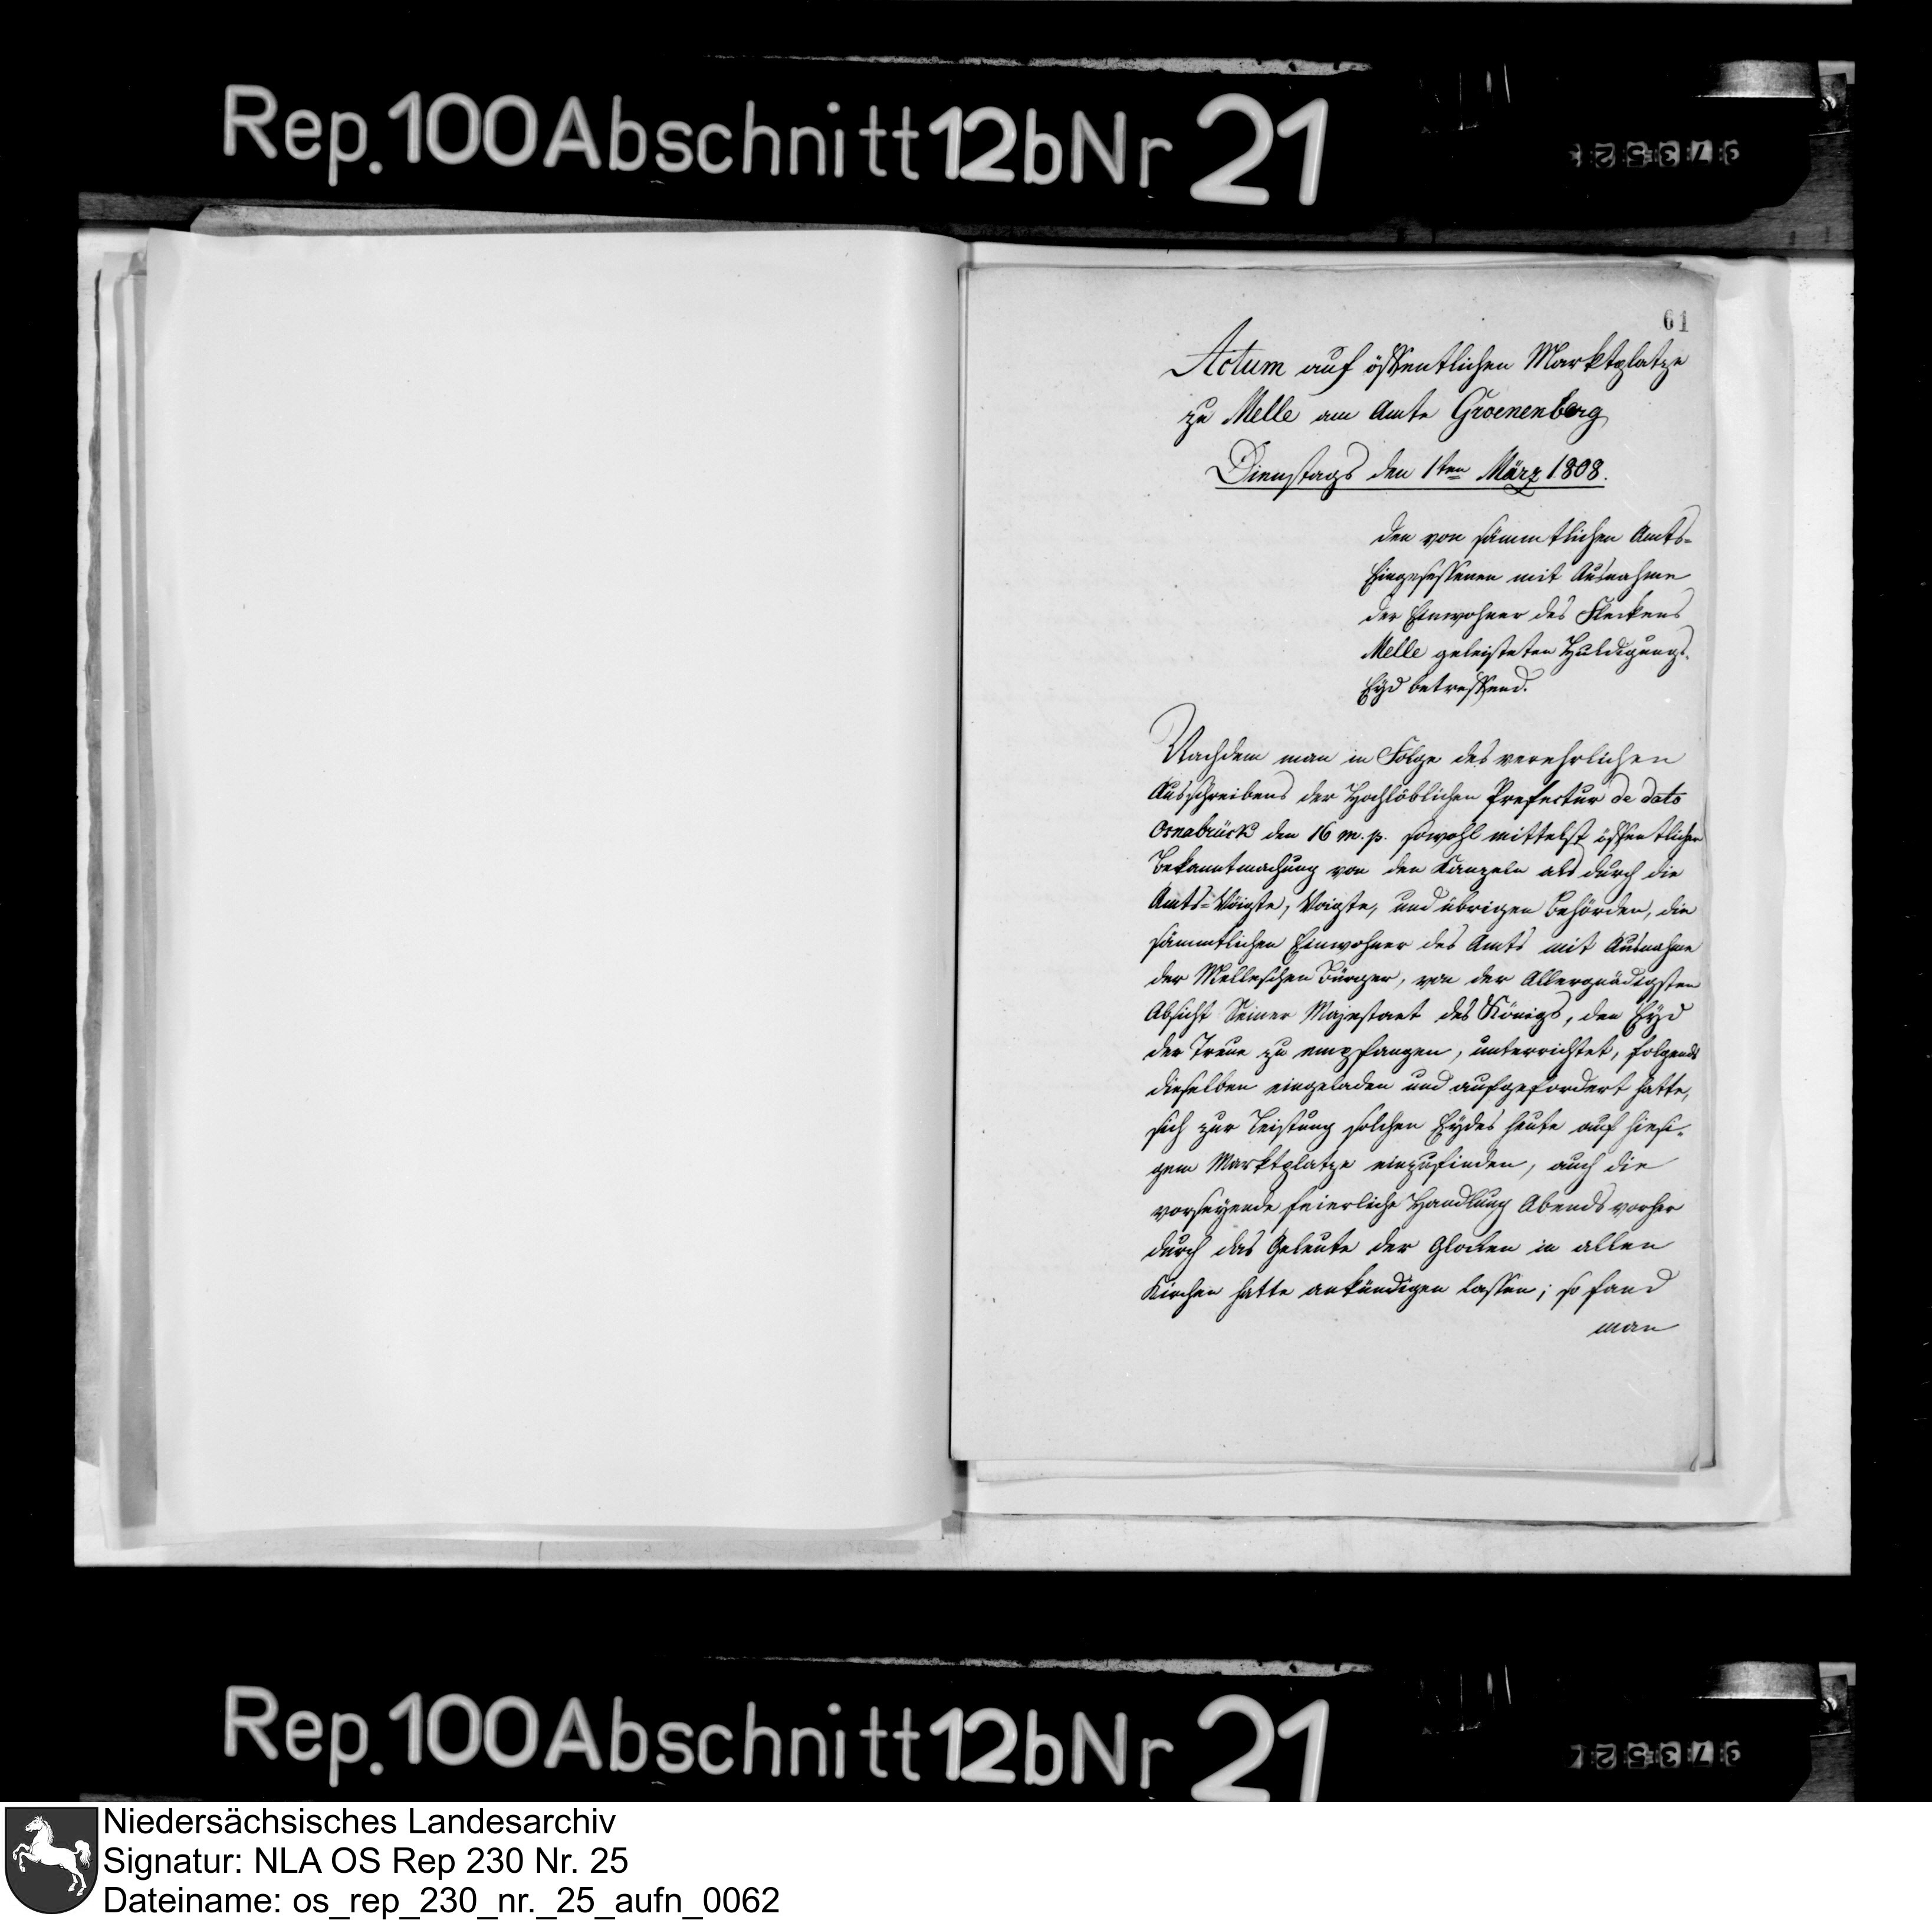 Rep. 100 Abschnitt 12b Nr 21
61
Actum auf öffentlichen Marktplatze
zu Melle am Amte Groenenberg
Dienstags den 1ten März 1808.
den von sämmtlichen Amts-
Eingesessenen mit Ausnahme
der Einwohner des Fleckens
Melle geleisteten Huldigungs-
Eyd betreffend.
Nachdem man in Folge des verehrlichen
Ausschreibens der Hochlöblichen Prefectur de dato
Osnabrück den 16 m. p. sowohl mittelst öffentlicher
Bekanntmachung von den Kanzeln als durch die
Amts-Vöigte, Voigte, und übrigen Behörden, die
sämmtlichen Einwohner des Amts mit Ausnahme
der Melleschen Bürger, von der Allergnädigsten
Absicht Seiner Majestaet des Königs, den Eyd
der Treue zu empfangen, unterrichtet, folgends
dieselben eingeladen und aufgefordert hatte,
sich zur Leistung solchen Eydes heute auf hiesi-
gem Marktplatze einzufinden, auch die
vorseyende feierliche Handlung Abends vorher
durch das Geleute der Glocken in allen
Kirchen hatte ankündigen lassen; so fand
man
Rep. 100 Abschnitt 12b Nr 21
Niedersächsisches Landesarchiv
Signatur: NLA OS Rep 230 Nr. 25
Dateiname: os_rep_230_nr._25_aufn_0062